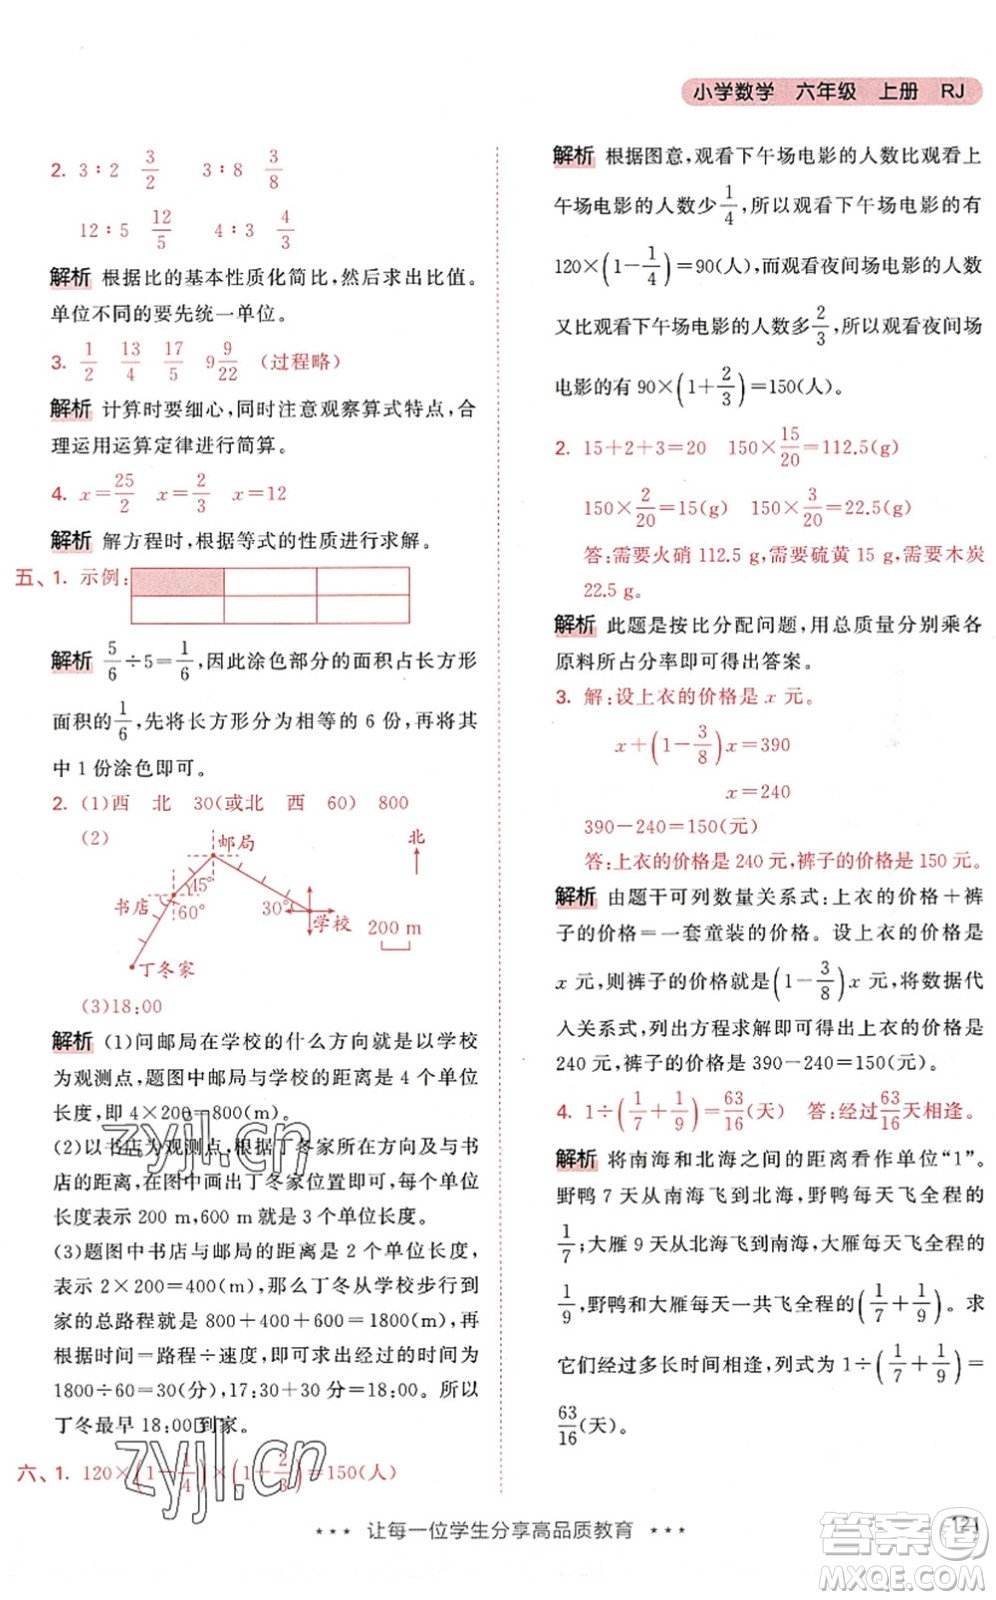 小学数学 六年级 上册 RJ
2. 3∶2 3/2 3∶8 3/8
12∶5 12/5 4∶3 4/3
解析 根据比的基本性质化简比,然后求出比值。
单位不同的要先统一单位。
3. 1/2 13/4 17/5 9 9/22 (过程略)
解析 计算时要细心,同时注意观察算式特点,合
理运用运算定律进行简算。
4. x=25/2 x=2/3 x=12
解析 解方程时,根据等式的性质进行求解。
五、1. 示例:
解析 5/6÷5=1/6,因此涂色部分的面积占长方形
面积的1/6,先将长方形分为相等的 6 份,再将其
中 1 份涂色即可。
2. (1)西 北 30(或北 西 60) 800
(2)
邮局
北
45°
书店
60°
30°
学校
200 m
丁冬家
(3)18:00
解析 (1)问邮局在学校的什么方向就是以学校
为观测点,题图中邮局与学校的距离是 4 个单位
长度,即 4×200=800(m)。
(2)以书店为观测点,根据丁冬家所在方向及与书
店的距离,在图中画出丁冬家位置即可,图中单位
长度表示 200 m,600 m 就是 3 个单位长度。
(3)题图中书店与邮局的距离是 2 个单位长度,
表示 2×200=400(m),那么丁冬从学校步行到
家的总路程应为 800+400+600=1800(m),再
根据时间=路程÷速度,求出他要走的时间为
1800÷60=30(分),17:30+30(分)=18:00。所以
丁冬最早 18:00 到家。
六、1. 120×(1-1/4)×(1+2/3)=150(人)
解析 根据图意,观看下午场电影的人数比观看上
午场电影的人数少1/4,所以观看下午场电影的有
120×(1-1/4)=90(人),而观看夜间场电影的人数
又比观看下午场电影的人数多2/3,所以观看夜间场
电影的有 90×(1+2/3)=150(人)。
2. 15+2+3=20 150×15/20=112.5(g)
150×2/20=15(g) 150×3/20=22.5(g)
答:需要火硝 112.5 g,需要硫黄 15 g,需要木炭
22.5 g。
解析 此题是按比分配问题,用总质量分别乘各
原料所占分率即可得出答案。
3. 解:设上衣的价格是 x 元。
x+(1-3/8)x=390
x=240
390-240=150(元)
答:上衣的价格是 240 元,裤子的价格是 150 元。
解析 由题干可列数量关系式:上衣的价格+裤
子的价格=一套童装的价格。设上衣的价格是
x 元,则裤子的价格是(1-3/8)x 元,将数据代
入关系式,列出方程求解即可得出上衣的价格是
240 元,裤子的价格是 390-240=150(元)。
4. 1÷(1/7+1/9)=63/16(天) 答:经过63/16天相逢。
解析 将南海和北海之间的距离看作单位“1”。
野鸭 7 天从南海飞到北海,野鸭每天飞全程的
1/7;大雁 9 天从北海飞到南海,大雁每天飞全程的
1/9,野鸭和大雁每天一共飞全程的(1/7+1/9)。求
它们经过多长时间相逢,列式为 1÷(1/7+1/9)=
63/16(天)。
*** 让每一位学生分享高品质教育 ***
121
zyjl.cn
zyjl.cn
答案圈
MXQE.COM